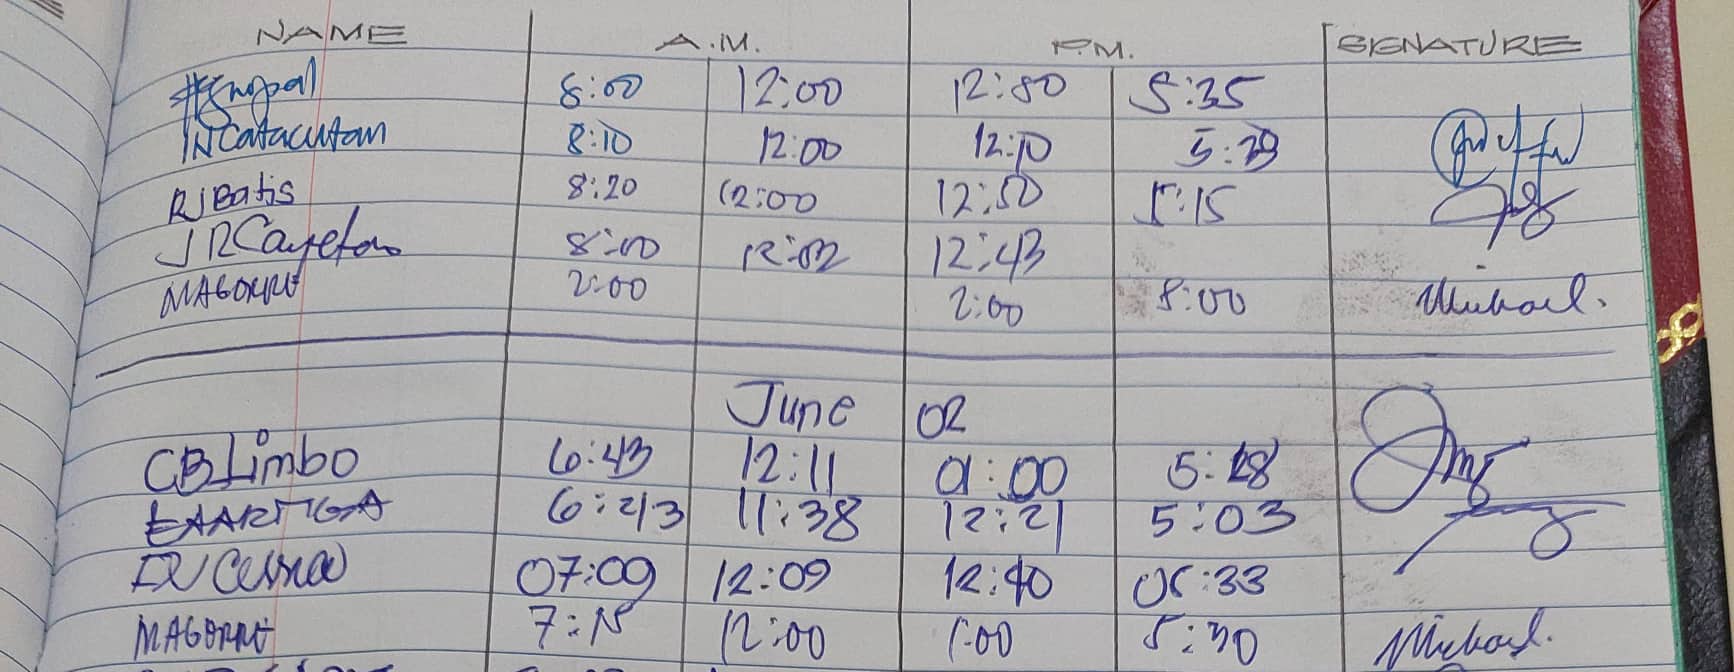 NAME A.M. P.M. SIGNATURE
8:00 12:00 12:50 5:35
INCatacutan 8:10 12:00 12:10 5:29
RJBatis 8:20 12:00 12:50 5:15
JRCayetano 8:00 12:02 12:43
MAGORRO 2:00 2:00 8:00 Michael.
June 02
CBLimbo 6:43 12:11 01:00 5:18
EAARTIGA 6:43 11:38 12:21 5:03
07:09 12:09 12:40 05:33
MAGORRO 7:15 12:00 1:00 5:30 Michael.